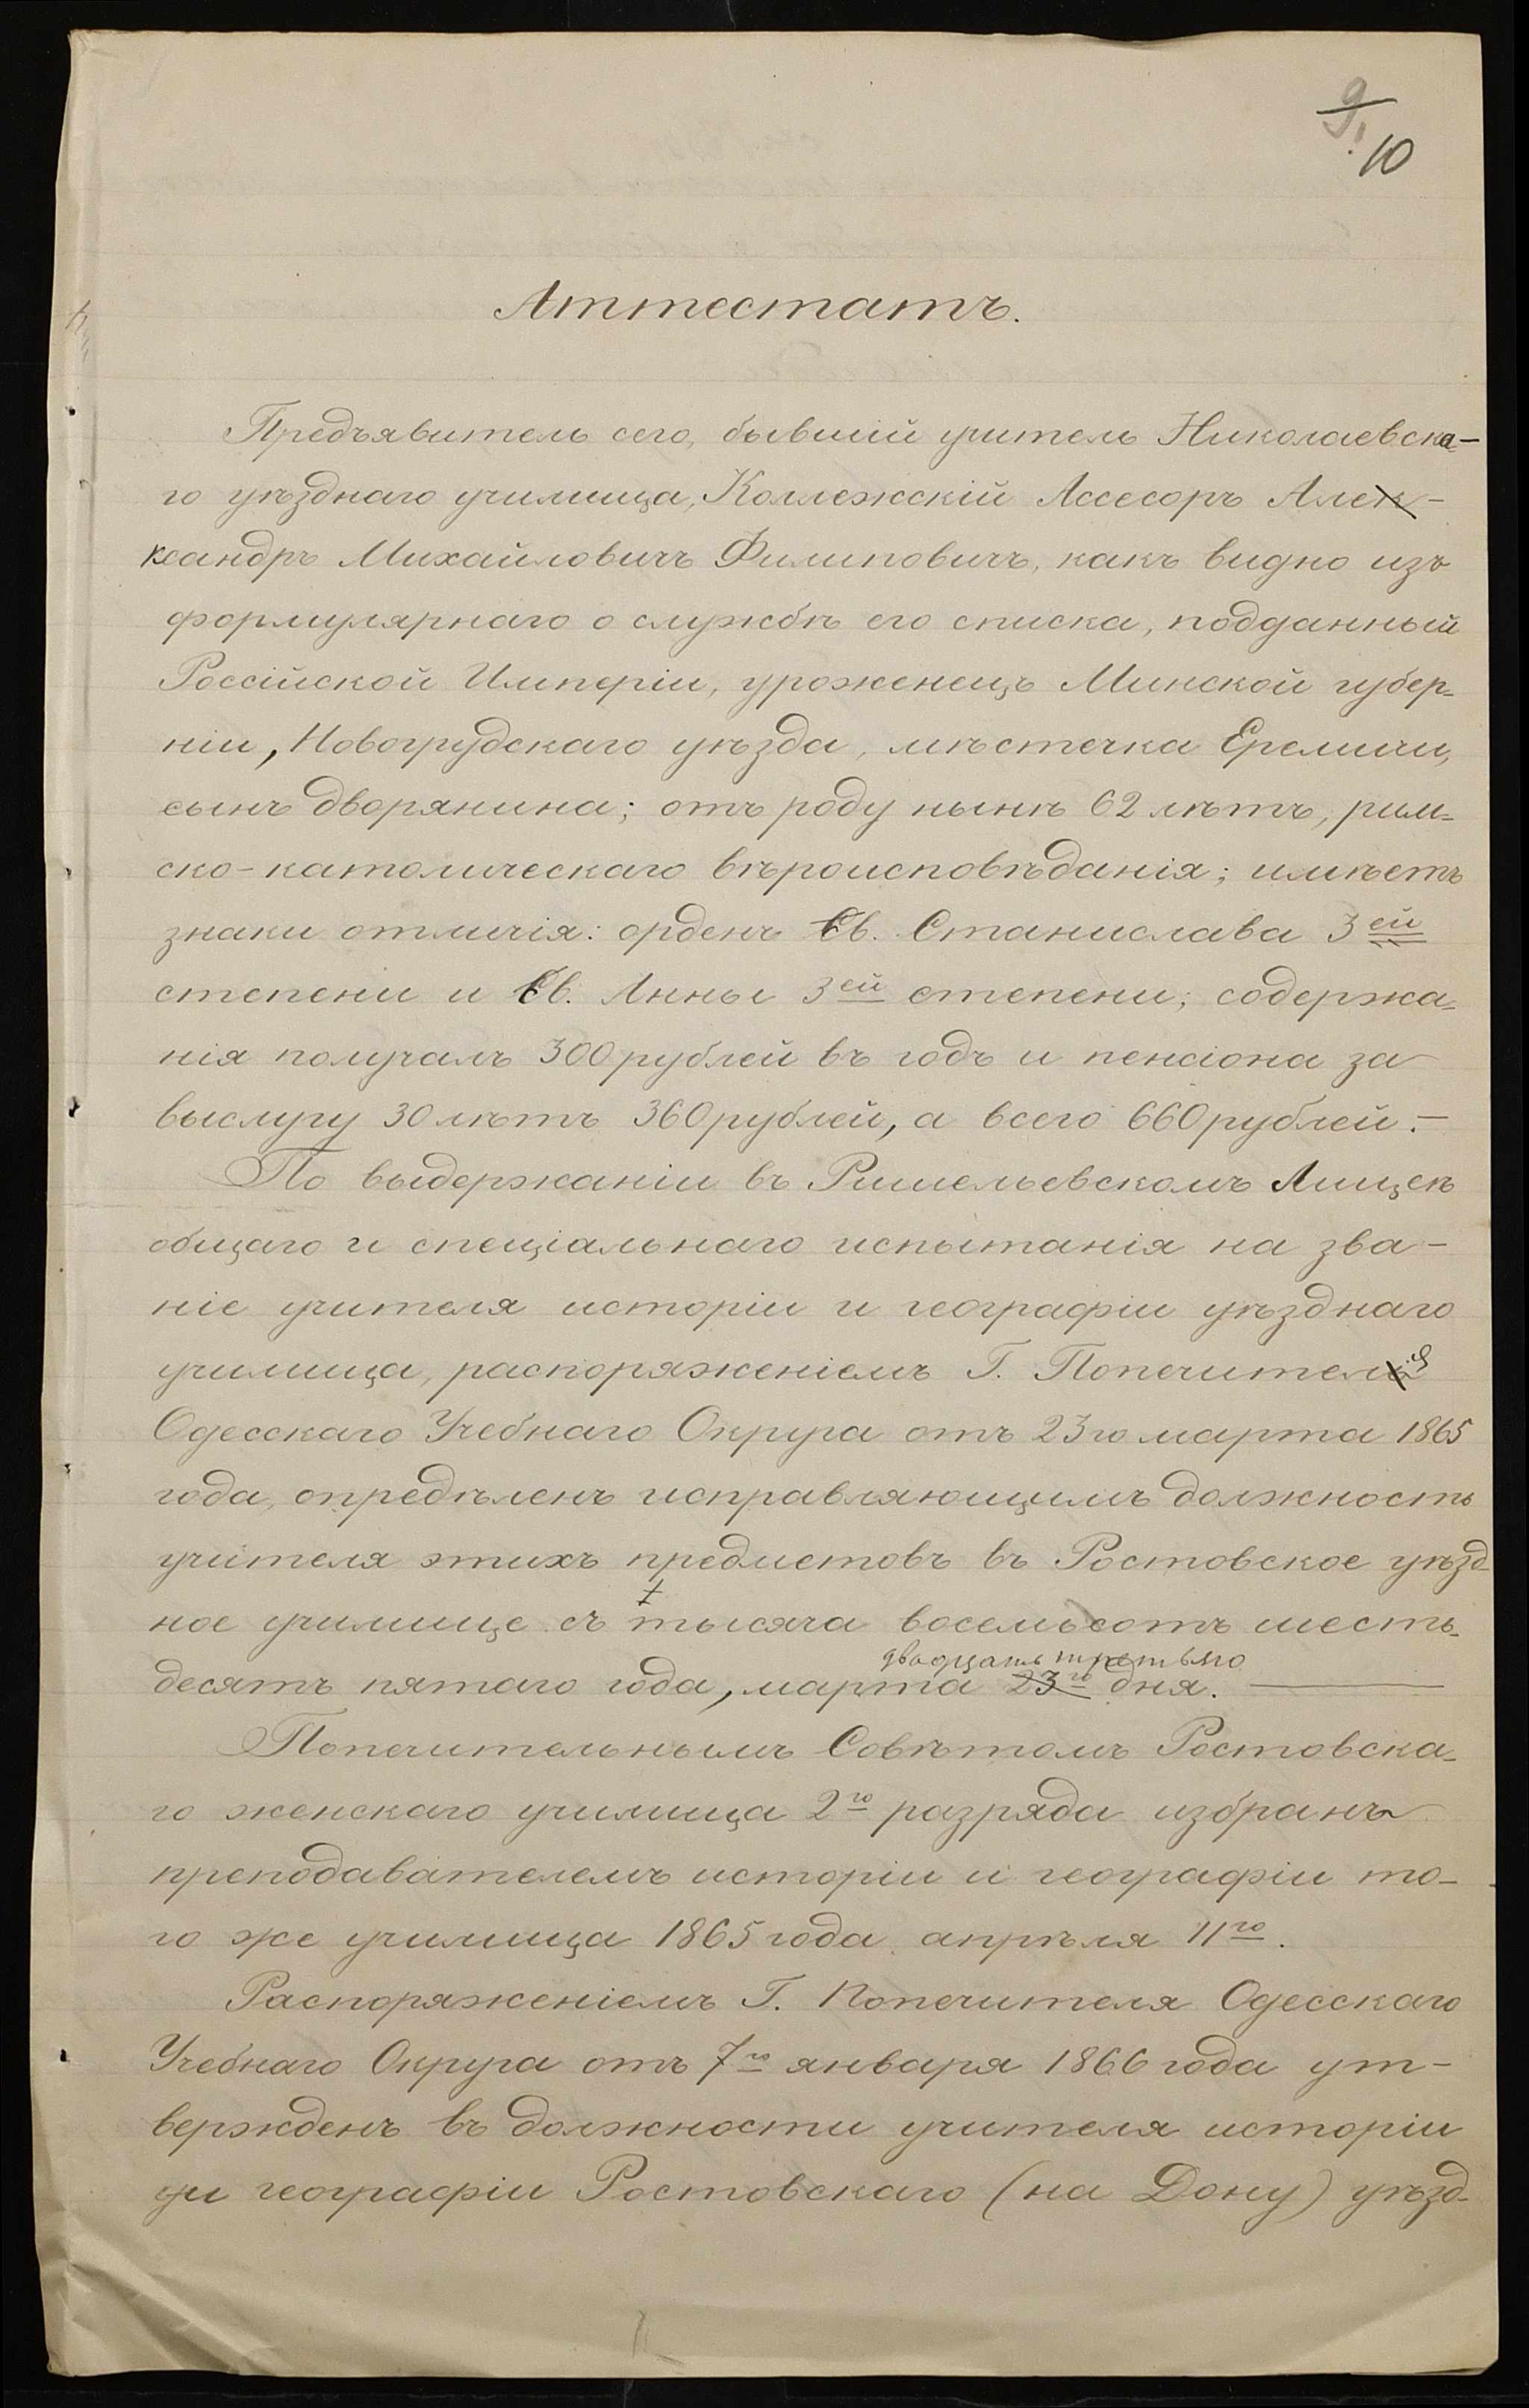 9
9
10
Аттестатъ.
Предъявитель сего, бывшій учитель Николаевска-
го уѣзднаго училища, Коллежскій Ассесоръ Алек-
ксандръ Михайловичъ Филиповичъ, какъ видно изъ
формулярнаго о службѣ его списка, подданный
Россійской Имперіи, уроженецъ Минской губер-
ніи, Новогрудскаго уѣзда, мѣстечка Еремичи,
сынъ дворянина; отъ роду нынѣ 62 лѣтъ, рим-
ско-католическаго вѣроисповѣданія; имѣетъ
знаки отличія: орденъ Св. Станислава 3ей
степени и Св. Анны 3ей степени; содержа-
нія получалъ 300 рублей въ годъ и пенсіона за
выслугу 30 лѣтъ 360 рублей, а всего 660 рублей.—
По выдержаніи въ Ришельевскомъ Лицеѣ
общаго и спеціальнаго испытанія на зва-
ніе учителя исторіи и географіи уѣзднаго
училища, распоряженіемъ Г. Попечителя
Одесскаго Учебнаго Округа отъ 23го марта 1865
года, опредѣленъ исправляющимъ должность
учителя этихъ предметовъ въ Ростовское уѣзд-
ное училище съ тысяча восемьсотъ шесть-
двадцать третьяго
десятъ пятаго года, марта 23го дня.
Попечительнымъ Совѣтомъ Ростовска-
го женскаго училища 2го разряда избранъ
преподавателемъ исторіи и географіи то-
го же училища 1865 года апрѣля 11го.
Распоряженіемъ Г. Попечителя Одесскаго
Учебнаго Округа отъ 7го января 1866 года ут-
вержденъ въ должности учителя исторіи
и географіи Ростовскаго (на Дону) уѣзд-